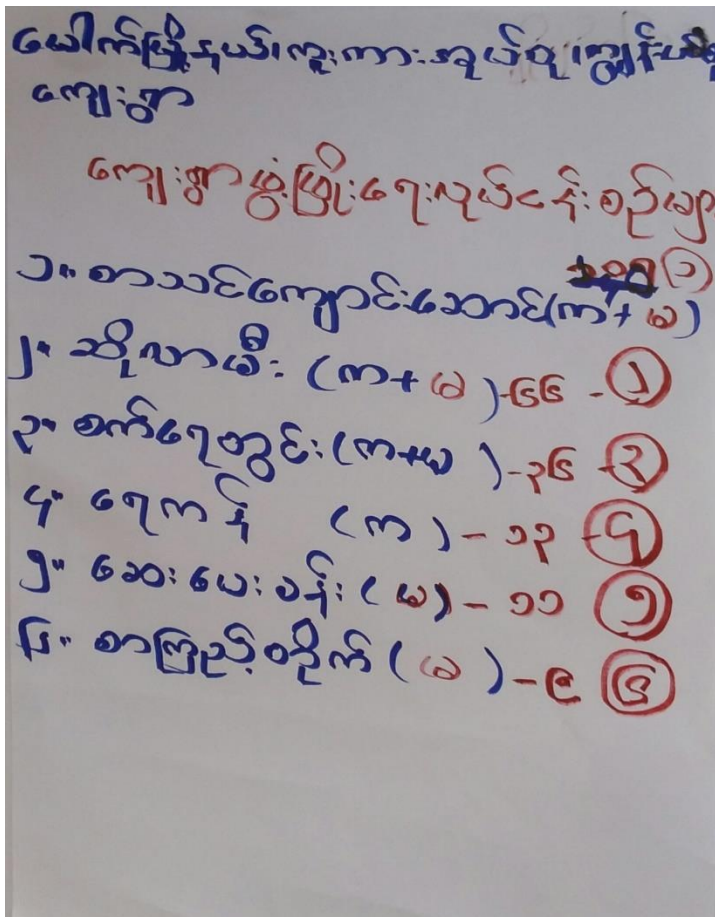 ပေါက်မြို့နယ်၊ကူးကားအုပ်စု၊ကျွန်း
ကျေးရွာ
ကျေးရွာဖွံ့ဖြိုးရေးလုပ်ငန်းစဉ်များ
၁
၁။ စာသင်ကျောင်းဆောင်(က+မ)
၂။ ဆိုလာမီး (က+မ)-၆၆ - ၂
၃။ စက်ရေတွင်း(က+မ)-၃၆ - ၃
၄။ ရေကန် (က) - ၁၃ - ၄
၅။ ဆေးပေးခန်း(မ) - ၁၁ ၅
၆။ စာကြည့်တိုက် (မ) - ၉ ၆